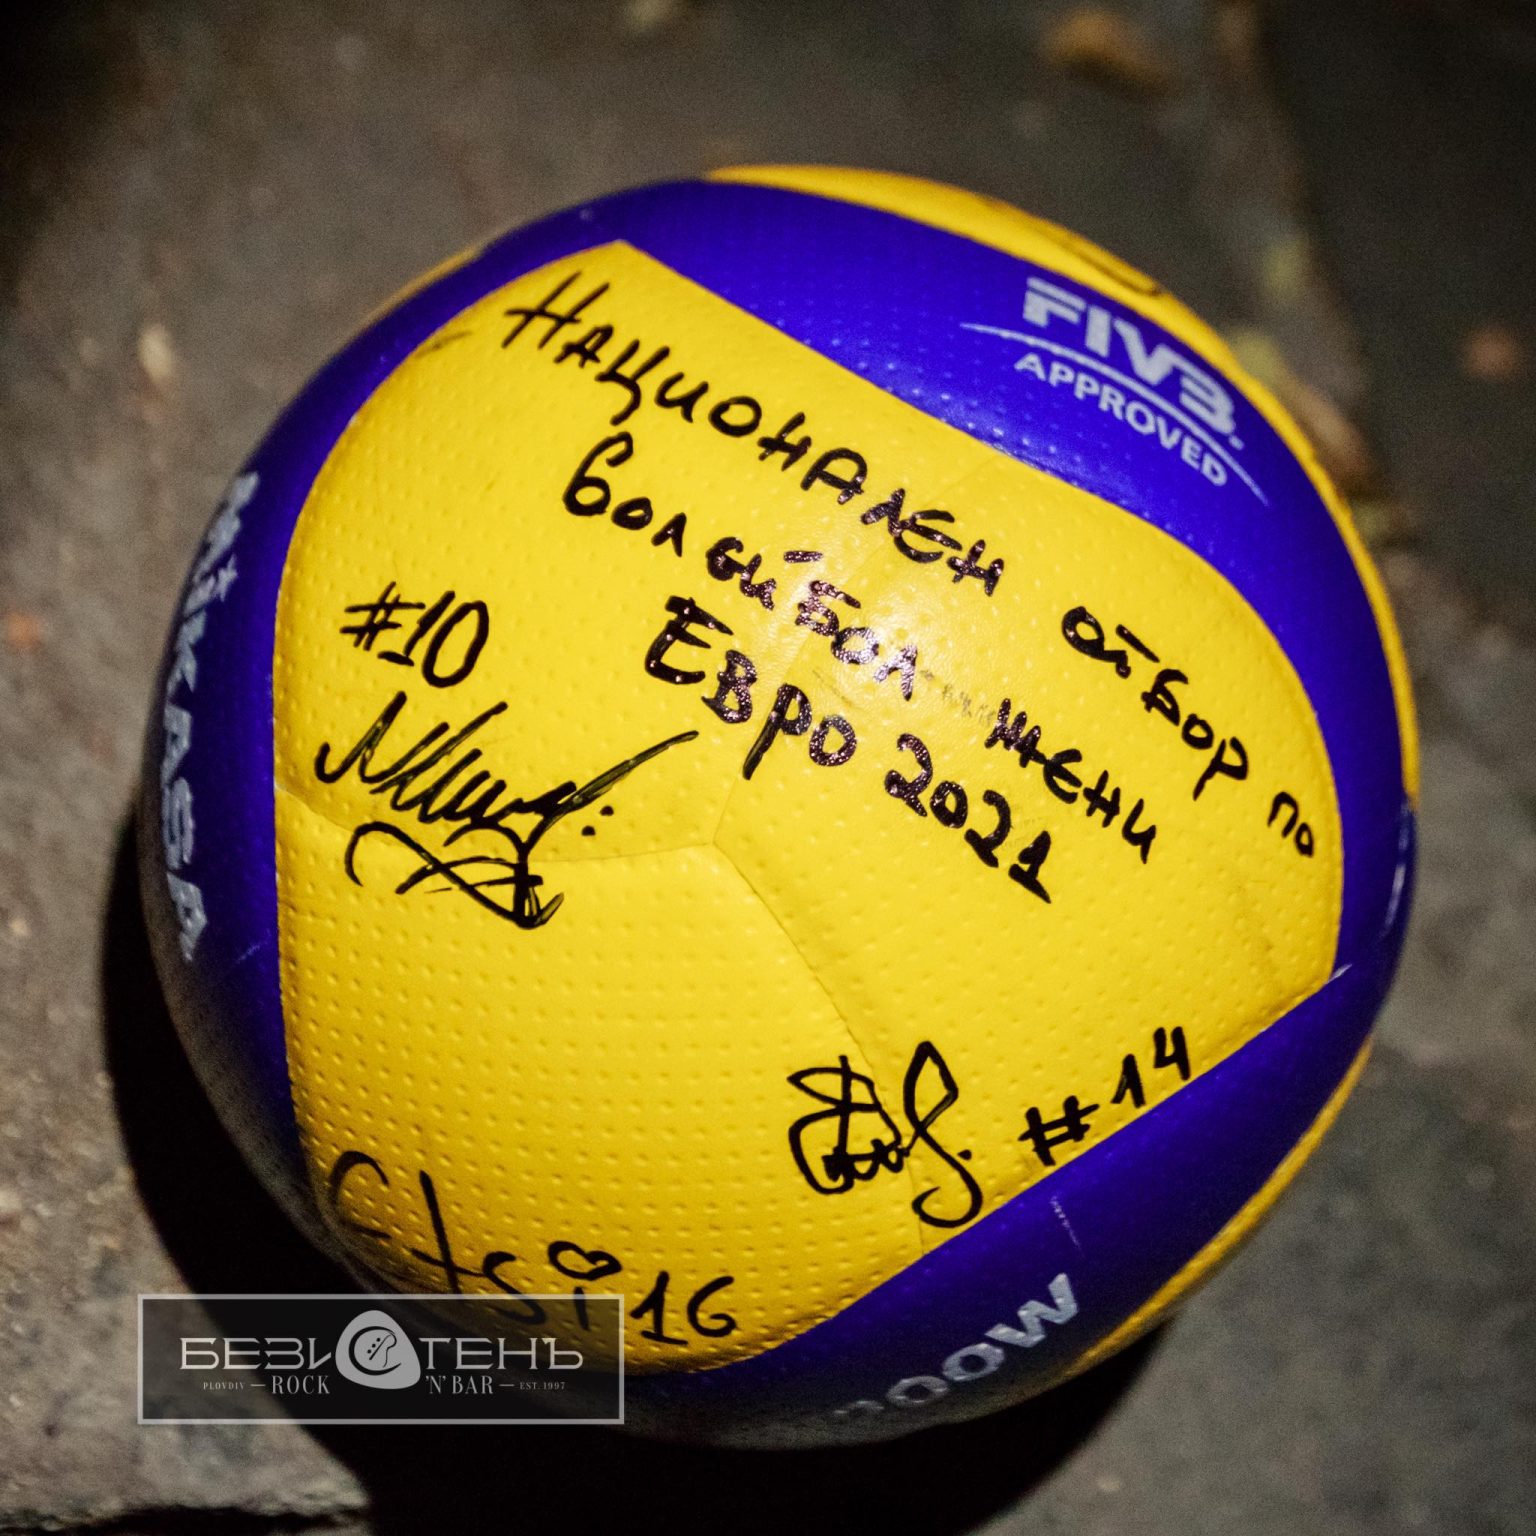 FIVB
APPROVED
MIKASA
НАЦИОНАЛЕН ОТБОР ПО
ВОЛЕЙБОЛ ЖЕНИ
ЕВРО 2021
#10
#14
16
БЕЗИСТЕНЪ
PLOVDIV — ROCK 'N' BAR — EST. 1997